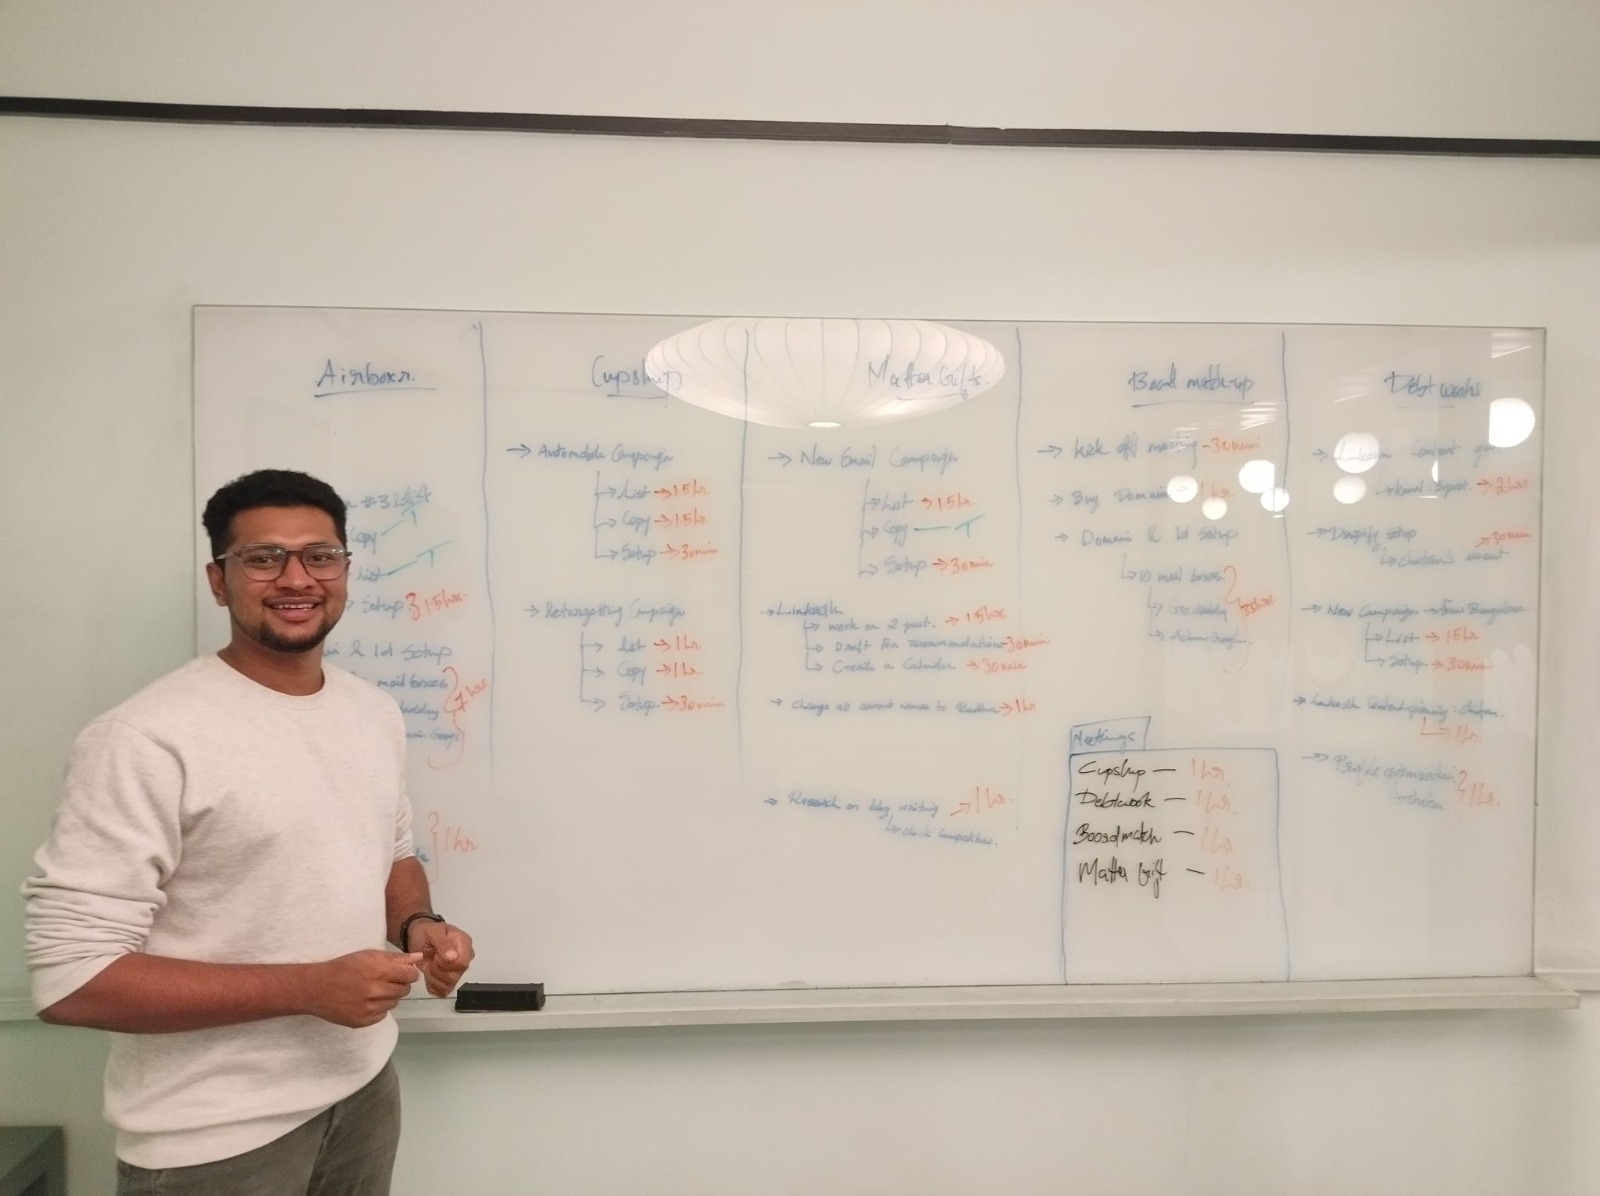 Airboxr.
#3 List
Copy T
List T
Setup } 1.5hrs.
& Id Setup
mail boxes
7 hrs
} 1hr
Cupshup
→ Automobile Campaign
→ List → 1.5hr.
→ Copy → 1.5hr.
→ Setup → 30min
→ Retargetting Campaign
→ List → 1hr
→ Copy → 1hr
→ Setup → 30min
Matter Gifts.
→ New Email Campaign
→ List → 1.5hr.
→ Copy — T
→ Setup → 30min
→ LinkedIn
→ Work on 2 post. → 1.5hrs.
→ Draft for recommendations - 30min
→ Create a Calendar → 30min
→ Change all account names to → 1hr
→ Research on blog writing → 1hr.
↳ check Competitors.
Board match-up
→ Kick off meeting - 30min
→ Buy Domain → 1hr.
→ Domain & Id Setup
↳ 10 mail boxes
→ Go daddy
Meetings
Cupshup — 1hr.
Debtwork — 1hr.
Boardmatch — 1hr
Matter Gift — 1hr.
Debt works
→ Linkedin Content
→ 2hrs
setup → 30min
↳ account
→ New Campaign → from Bangalore
→ List → 1.5hr
→ Setup → 30min
→ LinkedIn Content planning :
↳ 1hr.
→ Profile optimisation } 1hr.